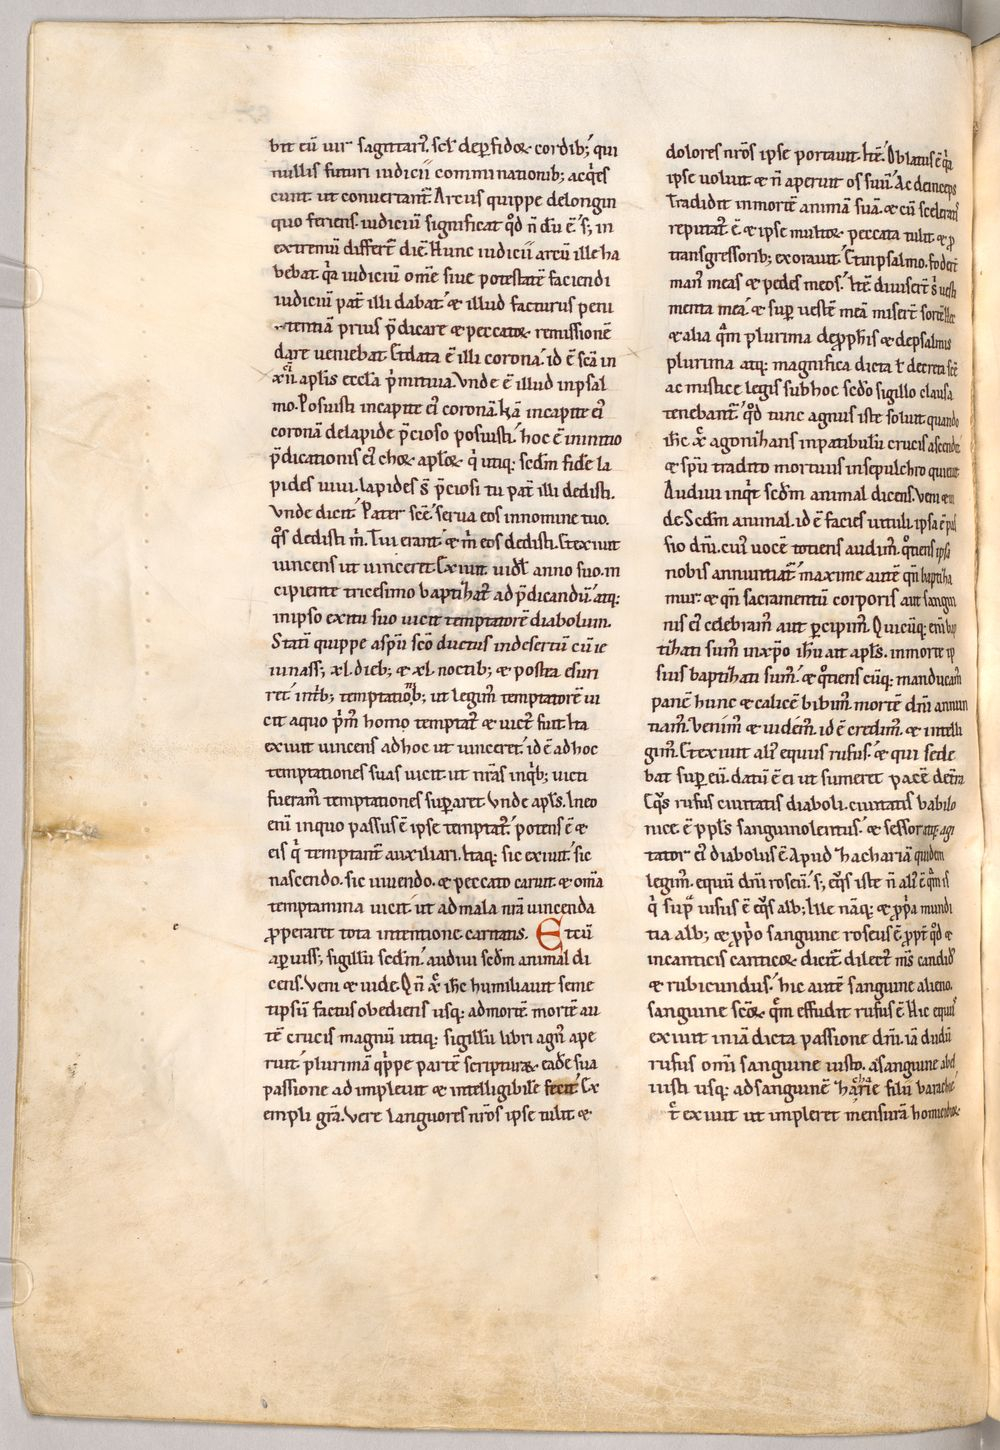 bit eũ uir sagittari᷒. scł de perfidoꝝ cordib; qui
nullis futuri iudicii comminationib; acq̃es
cunt. ut conuertant᷑. Arcus quippe de longin
quo feriens. iudiciũ significat qd̾ ñ dũ ẽ. s; in
extremũ differt᷑ diẽ. Hunc iudicii arcũ ille ha
bebat. q̾a iudiciũ om̃e siue potestatẽ faciendi
iudiciũ pat᷑ illi dabat. & illud facturus peni
tentiã prius p̃dicare & peccatoꝝ remissionẽ
dare ueniebat. Et data ẽ illi corona. id ẽ scã in
xii apłis eccła p̾mitiua. Vnde ẽ illud in psal
mo. Posuisti in capite ei᷒ coronã. Nã in capite ei᷒
coronã de lapide p̃cioso posuisti. hoc ẽ in initio
p̃dicationis ei᷒ choꝝ apłoꝝ q̾ utiq; scd̃m fidẽ la
pides uiui. lapides s̃ p̃ciosi tu pat᷑ illi dedisti.
Vnde dicit. Pater scẽ serua eos in nomine tuo.
q̊s dedisti m̾. Tui erant & m̾ eos dedisti. Et exiuit
uincens ut uinceret. Exiuit uidł anno suo. in
cipiente tricesimo baptizat᷑ ad p̃dicandũ. atq;
in ipso exitu suo uicit temptatorẽ diabolum.
Statĩ quippe a spũ scõ ductus in desertũ cũ ie
iunass; xl. dieb; & xl. noctib; & postea esuri
ret. int̾b; temptationib; ut legim᷒ temptatorẽ ui
cit a quo p̾m᷒ homo temptat᷒ & uict᷒ fuit. Ita
exiuit uincens ad hoc ut uinceret. id ẽ ad hoc
temptationes suas uicit. ut nr̃as in q̾b; uicti
fueram᷒ temptationes superaret. Vnde apłs. In eo
enĩ in quo passus ẽ ipse temptat᷒. potens ẽ &
eis q̾ temptant᷑ auxiliari. Itaq; sic exiuit. sic
nascendo. sic uiuendo. & peccato caruit. & om̃ia
temptamina uicit. ut ad mala nr̃a uincenda
ꝓperaret tota intentione caritatis. Et cũ
aperuiss; sigillũ scd̃m. audiui scd̃m animal di
cens. Veni & uide. Qñ xp̃c ih̃c humiliauit seme
tipsũ factus obediens usq; ad mortẽ mortẽ au
tẽ crucis magnũ utiq; sigillũ libri agn᷒ ape
ruit. plurimã q̾ppe partẽ scripturaꝝ eadẽ sua
passione ad impleuit & intelligibilẽ fecit. Ex
empli gr̃a. Vere languores nr̃os ipse tulit &
dolores nr̃os ipse portauit. Itẽ. Oblatus ẽ q̾a
ipse uoluit & ñ aperuit os suũ. Ac deinceps
Tradidit in mortẽ animã suã. & cũ sceleratis
reputat᷒ ẽ. & ipse multoꝝ peccata tulit & ꝓ
transgressorib; exorauit. Et in psalmo. Foder̃t
man᷒ meas & pedes meos. Itẽ diuiser̃t s̾ uesti
menta mea. & sup uestẽ meã miser̃t sortẽ. Hec
& alia q̃m plurima de ꝓphis & de psalmis
plurima atq; magnifica dicta ł decreta scẽ
ac mistice legis sub hoc scd̃o sigillo clausa
tenebant᷑. qd̾ tunc agnus iste soluit quando
ih̃c xp̃c agonizans in patibulũ crucis ascendit
& spũ tradito mortuus in sepulchro quieuit.
Audiui inq̾t scd̃m animal dicens. Veni & ui
de. Scd̃m animal. id ẽ facies uituli. ipsa ẽ pas
sio dñi. cui᷒ uocẽ totiens audim᷒. q̊tiens ipsa
nobis annuntiat᷑. maxime autẽ qñ baptiza
mur. & qñ sacramentũ corporis aut sangui
nis ei᷒ celebram᷒ aut percipim᷒. Quicũq; enĩ bap
tizati sum᷒ in xp̃o ih̃u ait apłs. in morte ip
sius baptizati sum᷒. & q̊tiens cũq; manducam᷒
panẽ hunc & calicẽ bibim᷒. mortẽ dñi annun
tiam᷒. Venim᷒ & uidem᷒. id ẽ credim᷒. & intelli
gim᷒. Et exiuit ali᷒ equus rufus. & qui sede
bat super eũ. datũ ẽ ei ut sumeret pacẽ de t̾ra
Eq̾s rufus ciuitatis diaboli. ciuitatis babilo
nice. ẽ ppłs sanguinolentus. & sessor atq; agi
tator ei᷒ diabolus ẽ. Apud zachariã quidem
legim᷒. equũ dñm roseũ. s; eq̾s iste ñ ali᷒ ẽ q̃m is
q̾ sup̾ uisus ẽ eq̾s alb; Ille nãq; & ꝓp̾a mundi
tia alb; & ꝓp̾o sanguine roseus ẽ. ꝓpt᷑ qd̾ &
in canticis canticoꝝ dicit᷑. dilect᷒ m̃s candid᷒
& rubicundus. hic autẽ sanguine alieno.
sanguine scõꝝ q̃m effudit rufus ẽ. Hic equus
exiuit in iã dicta passione dñi. iã dudũ
rufus om̃i sanguine iusto. a sanguine abel
iusti usq; ad sanguinẽ zacharie filii barachie
⁊̾ exiuit ut impleret mensurã homicidioꝝ